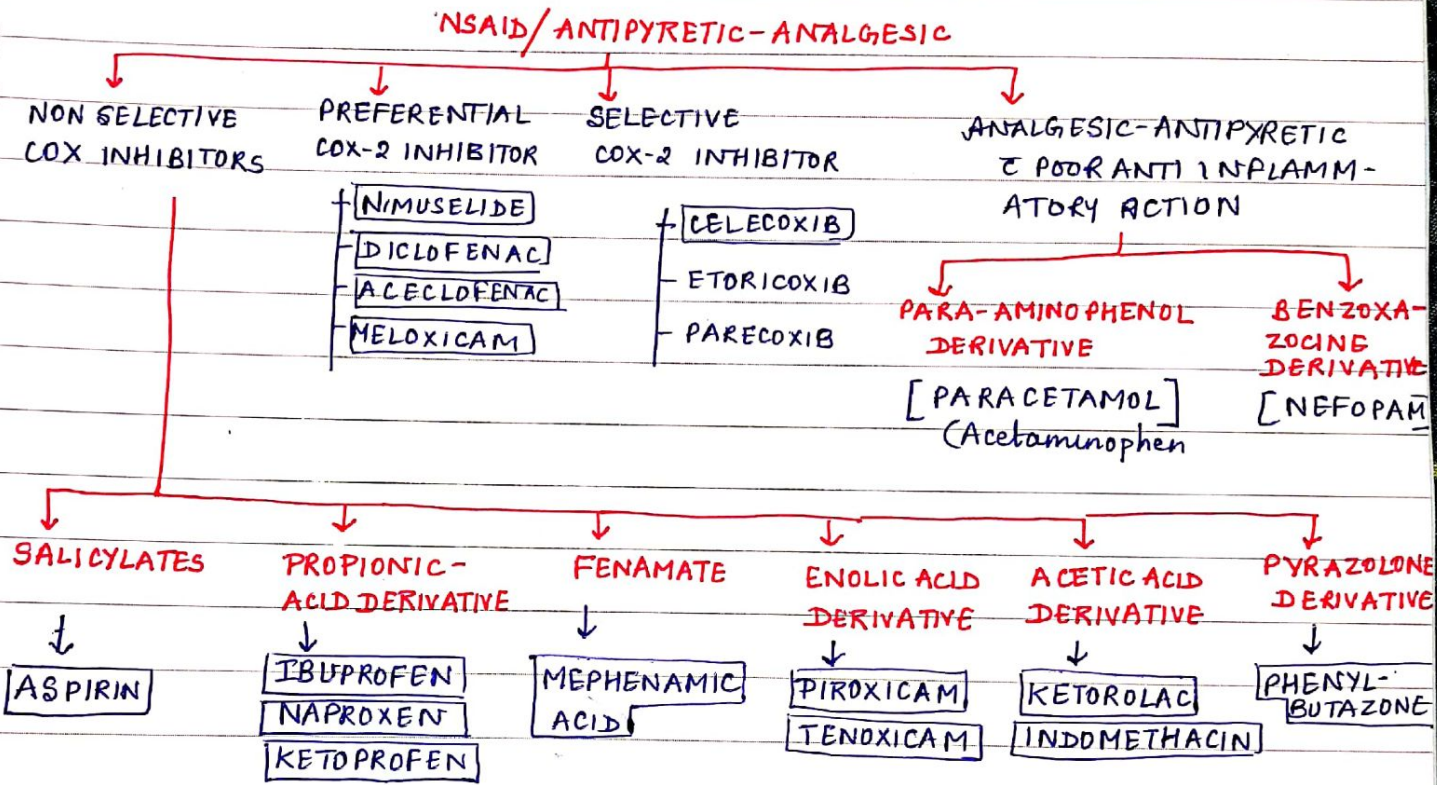 NSAID/ANTIPYRETIC-ANALGESIC
NON SELECTIVE
COX INHIBITORS
PREFERENTIAL
COX-2 INHIBITOR
NIMUSELIDE
DICLOFENAC
ACECLOFENAC
MELOXICAM
SELECTIVE
COX-2 INHIBITOR
CELECOXIB
ETORICOXIB
PARECOXIB
ANALGESIC-ANTIPYRETIC
c̄ POOR ANTI INFLAMM-
ATORY ACTION
PARA-AMINOPHENOL
DERIVATIVE
[PARACETAMOL]
(Acetaminophen
BENZOXA-
ZOCINE
DERIVATIVE
[NEFOPAM
SALICYLATES
ASPIRIN
PROPIONIC-
ACID DERIVATIVE
IBUPROFEN
NAPROXEN
KETOPROFEN
FENAMATE
MEPHENAMIC
ACID
ENOLIC ACID
DERIVATIVE
PIROXICAM
TENOXICAM
ACETIC ACID
DERIVATIVE
KETOROLAC
INDOMETHACIN
PYRAZOLONE
DERIVATIVE
PHENYL-
BUTAZONE